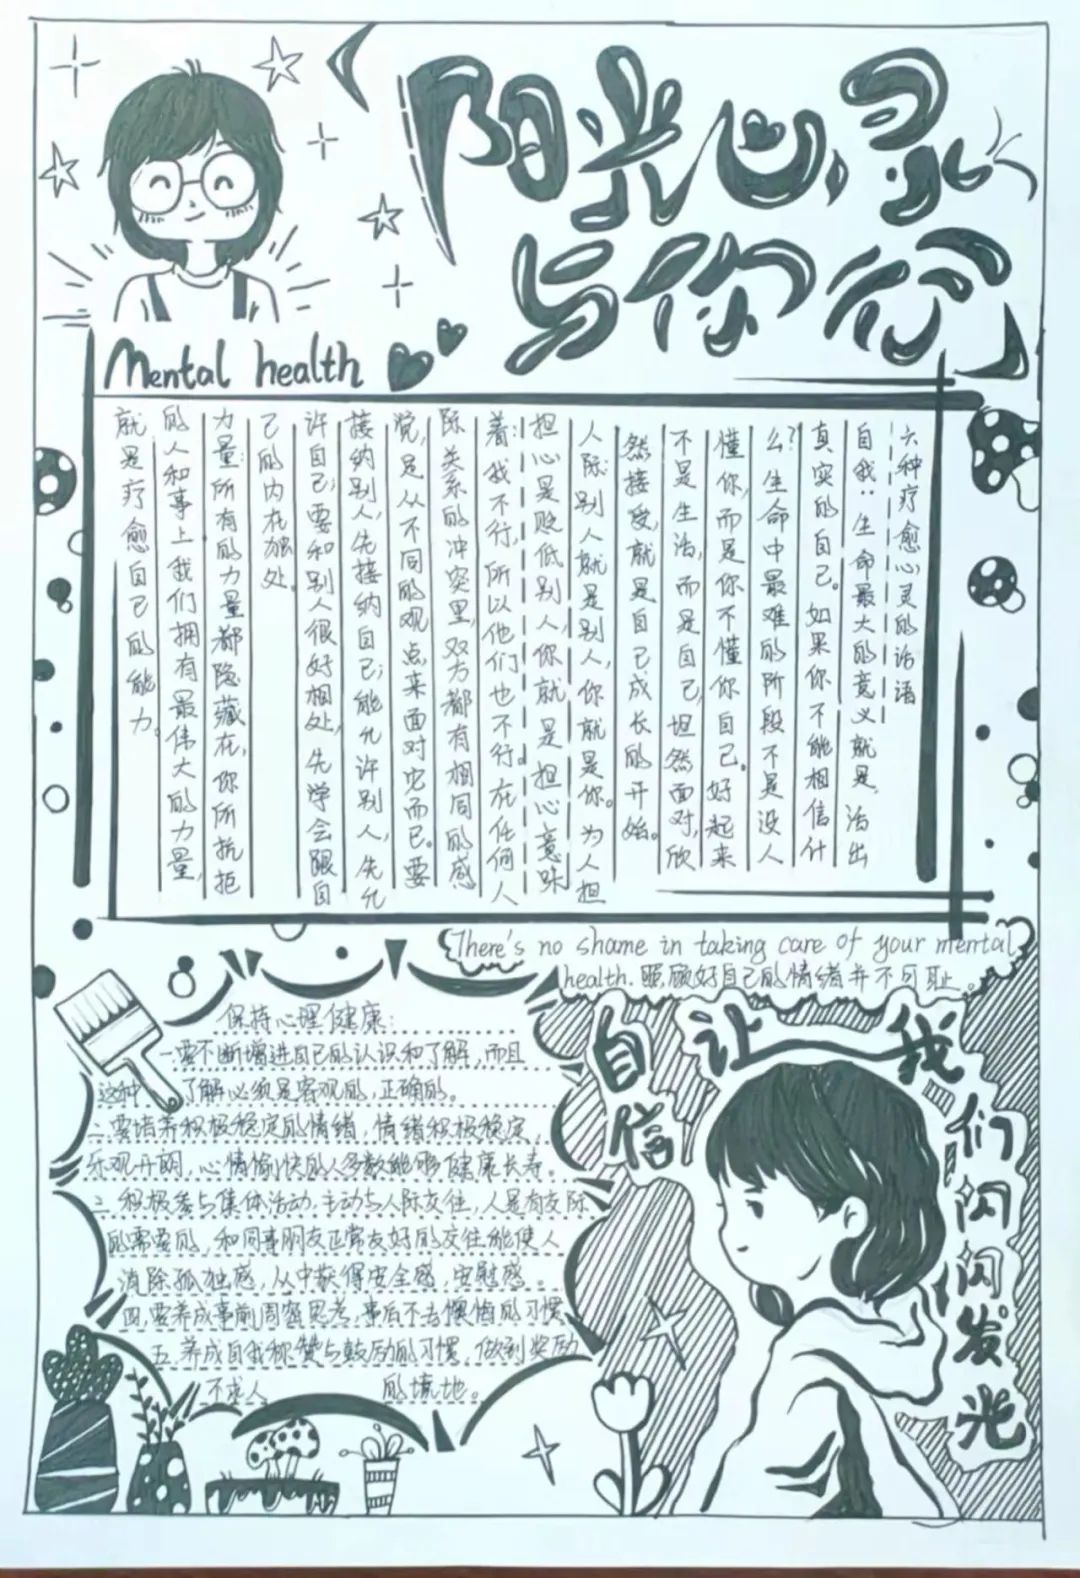 阳光心灵
与你心
Mental health
六种疗愈心灵的话语
自我:生命最大的意义就是,活出
真实的自己。如果你不能相信什
么?生命中最难的阶段不是没人
懂你,而是你不懂你自己。好起来
不是生活,而是自己,坦然面对,欣
然接受,就是自己成长的开始。
人际:别人就是别人,你就是你。为人担
担心是贬低别人,你就是担心意味
着:我不行,所以他们也不行。在任何人
际关系的冲突里,双方都有相同的感
觉,是从不同的观点来面对它而已。要
接纳别人,先接纳自己;能允许别人,先允
许自己;要和别人很好相处,先学会跟自
己的内在独处。
力量:所有的力量都隐藏在,你所抗拒
的人和事上我们拥有最伟大的力量,
就是疗愈自己的能力。
There's no shame in taking care of your mental
health.照顾好自己的情绪并不可耻。
保持心理健康:
一要不断增进自己的认识和了解,而且
这种 了解必须是客观的,正确的。
二要培养积极稳定的情绪,情绪积极稳定,
乐观开朗,心情愉快的人多数能够健康长寿。
三 积极参与集体活动.主动与人际交往,人是有交际
的需要的,和同事朋友正常友好的交往能使人
消除孤独感,从中获得安全感,安慰感。
四,要养成事前周密思考,事后不去懊悔的习惯
五.养成自我称赞与鼓励的习惯,做到奖励
不求人 的境地。
自信
让我们闪闪发光